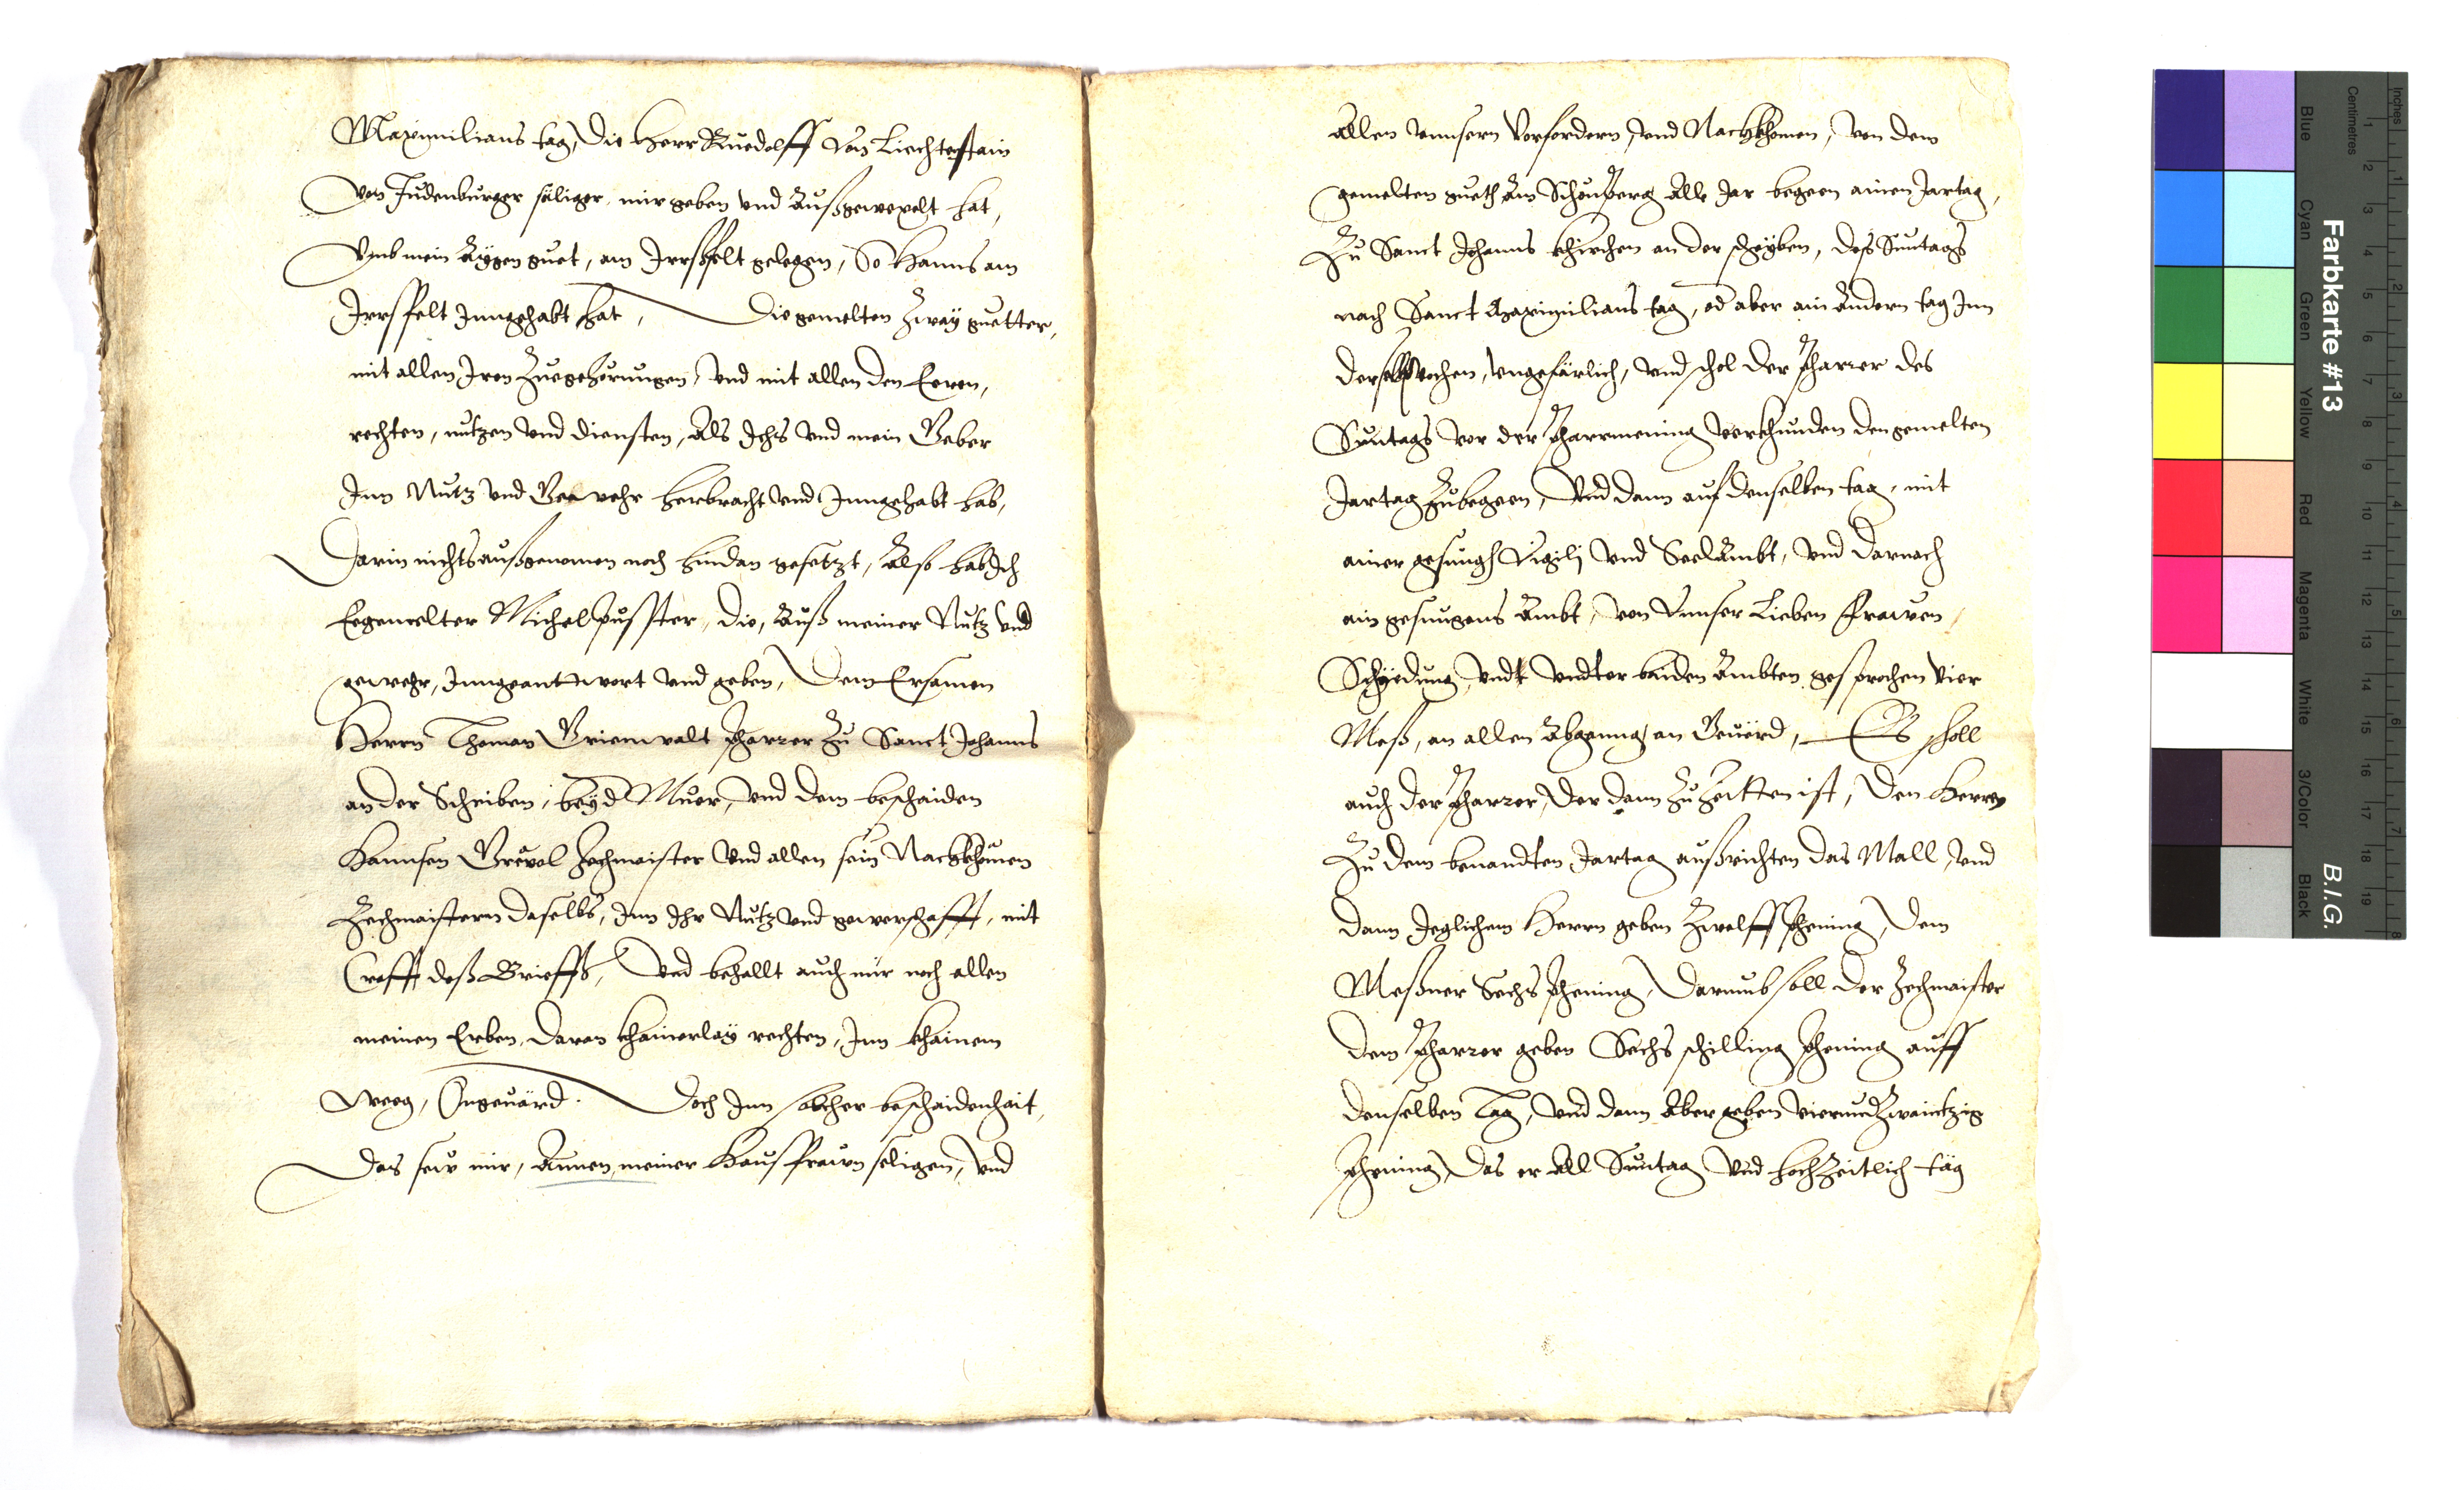 Maximilians tag, die Herr Ruedolff von Liechtestain
von Judenburger säliger, mir geben vnd außgewexelt hat,
Vmb mein aÿgen guet, am Irrsfelt gelegen, So Hanns am
Irrsfelt Inngehabt hat, Die gemelten zwaÿ guetter,
mit allen Iren zuegehörungen, vnd mit allen den Eeren,
rechten, nutzen vnd diensten, Als Ichs vnd mein Geber
Inn Nutz vnd Gewehr herbracht vnd Inngehabt hab,
Darin nichts außgenomen noch hindan gesetzt, Also hab Ich
Eegemelter Michel Pusster, die, Auß meiner Nutz vnd
gewehr, Inngeanttwort vnd geben, Dem Ersamen
Herrn Thoman Grienwalt Pharrer zu Sanct Johanns
an der Scheiben, beÿ d Muer, vnd dem beschaiden
Hannsen Zechmaister vnd allen sein Nachkhomen
Zechmaistern daselbs, Inn Ihr Nutz vnd gewerschafft, mit
Crafft deß Brieffs, Vnd behallt auch mir noch allen
meinen Erben, daran khainerlaÿ rechten, Inn khainem
Weeg, Ongeuärd. Doch Inn solcher beschaidenhait,
Das seÿ mir, Annen, meiner Hausfrawn seligen, vnd
Allen vnnsern Vorfordern, vnd Nachkhomen, von dem
gemelten gueth am Schönperg Alle Jar begeen ainen Jartag,
Zu Sanct Johanns khirchen an der scheÿben, deß Suntags
nach Sanct Maximilians tag, od aber am Andern tag Inn
derselb wochen, vngefärlich, vnd schol der Pharrer des
Suntags vor der Pharrmening verkhunden den gemelten
Jartag zubegeen, Vnd dann auf denselben tag, mit
ainer gesungn Vigilj vnd Seelambt, vnd darnach
ein gesungens Ambt, von Vnnser Lieben Frawen
Schÿdung, vndt vndter baiden Ambten gesprochen vier
Meß, an allen Abganng, an Geuärd, Es scholl
auch der Pharrer, der dann zu Zeitten ist, den Herren
Zu dem benandten Jartag außrichten das Mall, vnd
dann Jeglichem Herrn geben Zwelff phening, dem
Meßner Sechs phening, Darumb soll der Zechmaister
dem Pharrer geben Sechs schilling phening auff
denselben Tag, vnd dann Aber geben vierundzwaintzig
phening, das er All Suntag vnd hochzeitlich täg